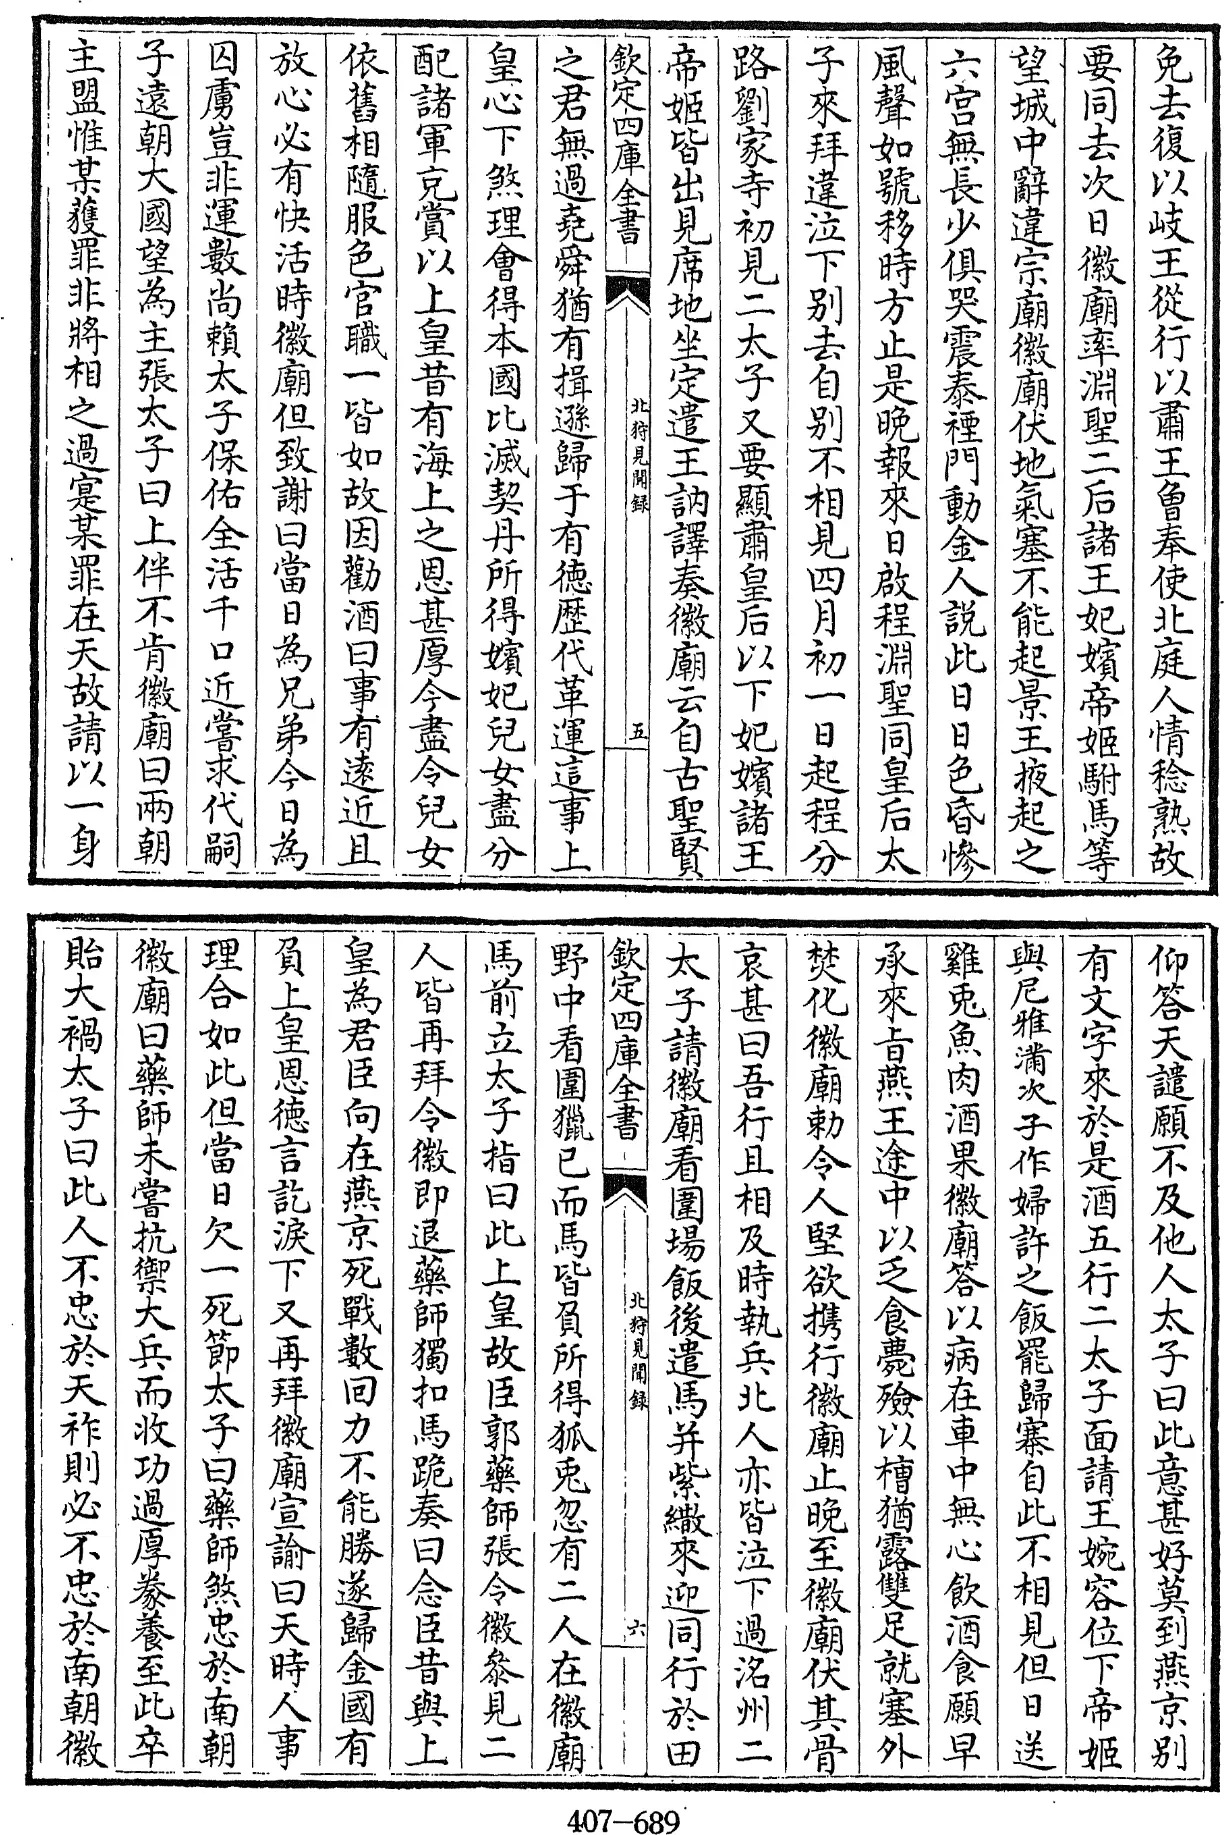 免去復以岐王從行以肅王曾奉使北庭人情稔熟故
要同去次日徽廟率淵聖二后諸王妃嬪帝姬駙馬等
望城中辭違宗廟徽廟伏地氣塞不能起景王掖起之
六宫無長少俱哭震泰禋門動金人說此日日色昏慘
風聲如號移時方止是晚報來日啟程淵聖同皇后太
子來拜違泣下别去自别不相見四月初一日起程分
路劉家寺初見二太子又要顯肅皇后以下妃嬪諸王
帝姬皆出見席地坐定遣王訥譯奏徽廟云自古聖賢
欽定四庫全書
北狩見聞録
五
之君無過堯舜猶有揖遜歸于有德歴代革運這事上
皇心下煞理會得本國比滅契丹所得嬪妃兒女盡分
配諸軍充賞以上皇昔有海上之恩甚厚今盡令兒女
依舊相隨服色官職一皆如故因勸酒曰事有遠近且
放心必有快活時徽廟但致謝曰當日為兄弟今日為
囚虜豈非運數尚賴太子保佑全活千口近嘗求代嗣
子遠朝大國望為主張太子曰上伴不肯徽廟曰兩朝
主盟惟某獲罪非將相之過寔某罪在天故請以一身
仰答天譴願不及他人太子曰此意甚好莫到燕京别
有文字來於是酒五行二太子面請王婉容位下帝姬
與尼雅滿次子作婦許之飯罷歸寨自此不相見但日送
雞兎魚肉酒果徽廟答以病在車中無心飲酒食願早
承來旨燕王途中以乏食薨殮以槽猶露雙足就塞外
焚化徽廟勅令人堅欲携行徽廟止晚至徽廟伏其骨
哀甚曰吾行且相及時執兵北人亦皆泣下過洺州二
太子請徽廟看圍場飯後遣馬并紫繖來迎同行於田
欽定四庫全書
北狩見聞録
六
野中看圍獵已而馬皆負所得狐兎忽有二人在徽廟
馬前立太子指曰此上皇故臣郭藥師張令徽叅見二
人皆再拜令徽即退藥師獨扣馬跪奏曰念臣昔與上
皇為君臣向在燕京死戰數回力不能勝遂歸金國有
負上皇恩德言訖淚下又再拜徽廟宣諭曰天時人事
理合如此但當日欠一死節太子曰藥師煞忠於南朝
徽廟曰藥師未嘗抗禦大兵而收功過厚豢養至此卒
貽大禍太子曰此人不忠於天祚則必不忠於南朝徽
407-689